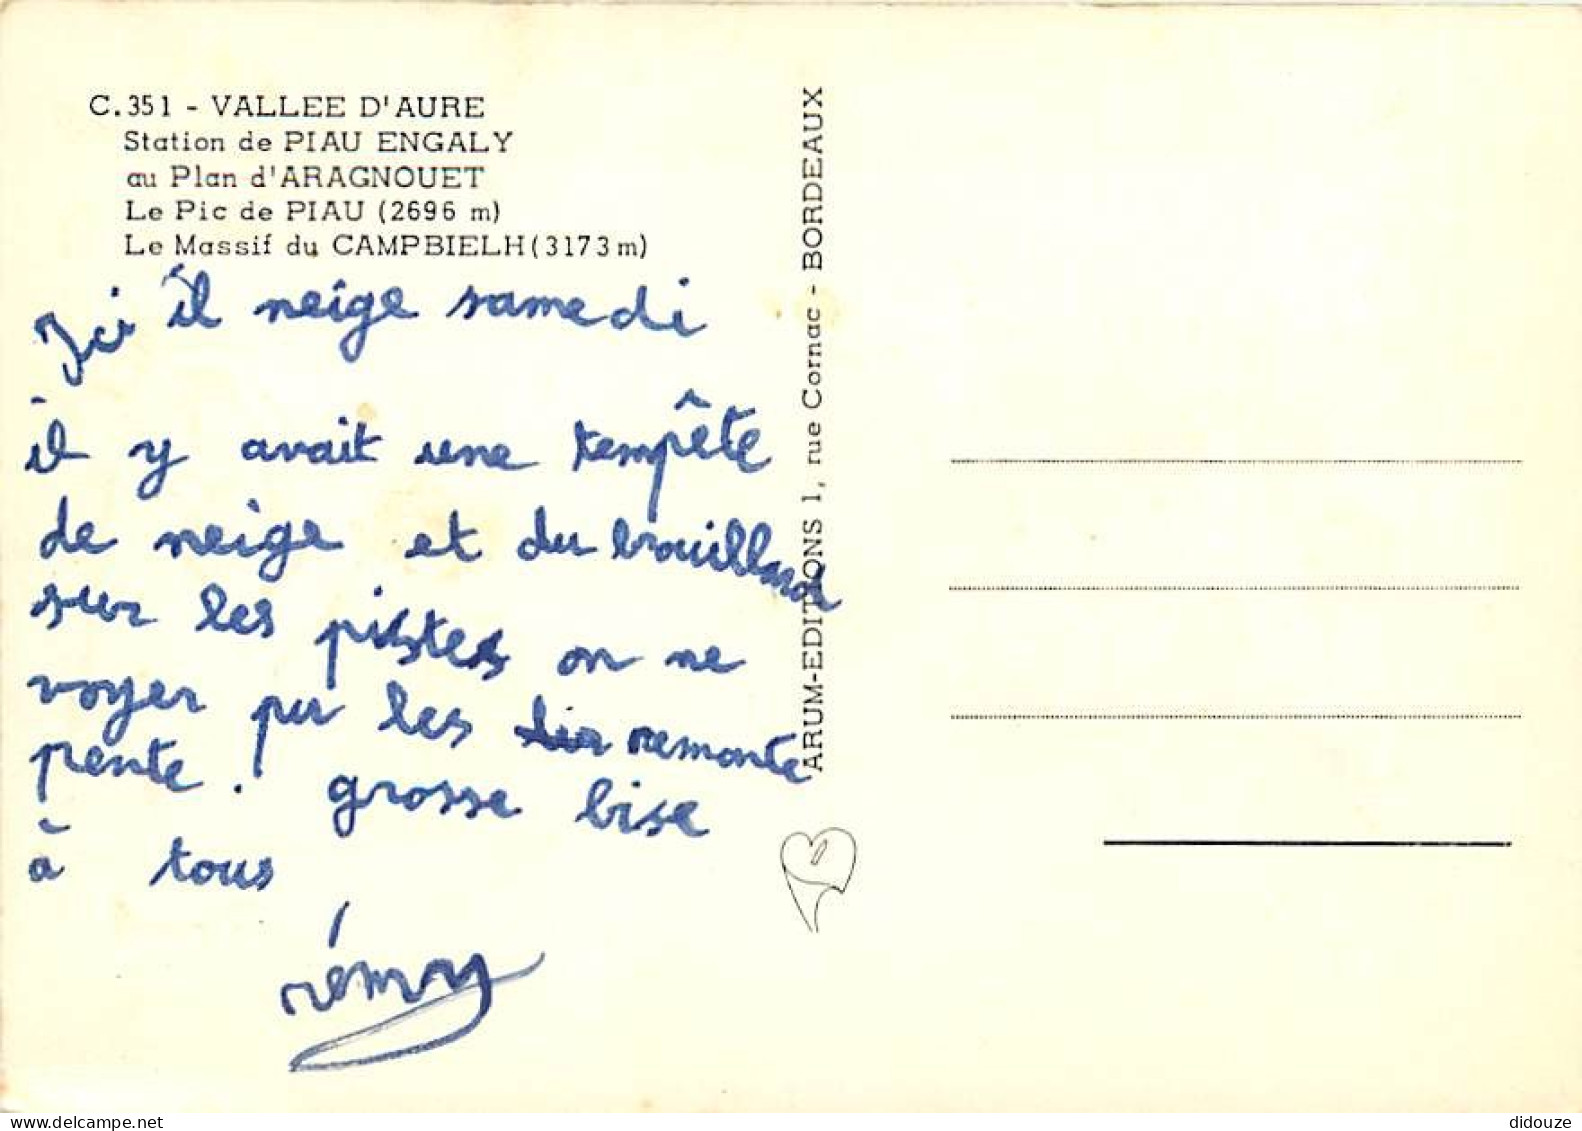 C.351 - VALLEE D'AURE
Station de PIAU ENGALY
au Plan d'ARAGNOUET
Le Pic de PIAU (2696 m)
Le Massif du CAMPBIELH (3173 m)
Ici il neige samedi
il y avait une tempête
de neige et du brouillard
sur les pistes on ne
voyer pu les remonte
pente. grosse bise
à tous
rémy
ARUM-EDITIONS 1, rue Cornac - BORDEAUX
delcampe.net
didouze